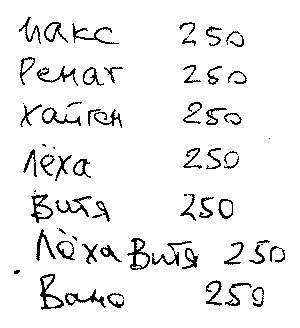 Макс 250
Ренат 250
Хайген 250
Лёха 250
Витя 250
Лёха Витя 250
Вано 250